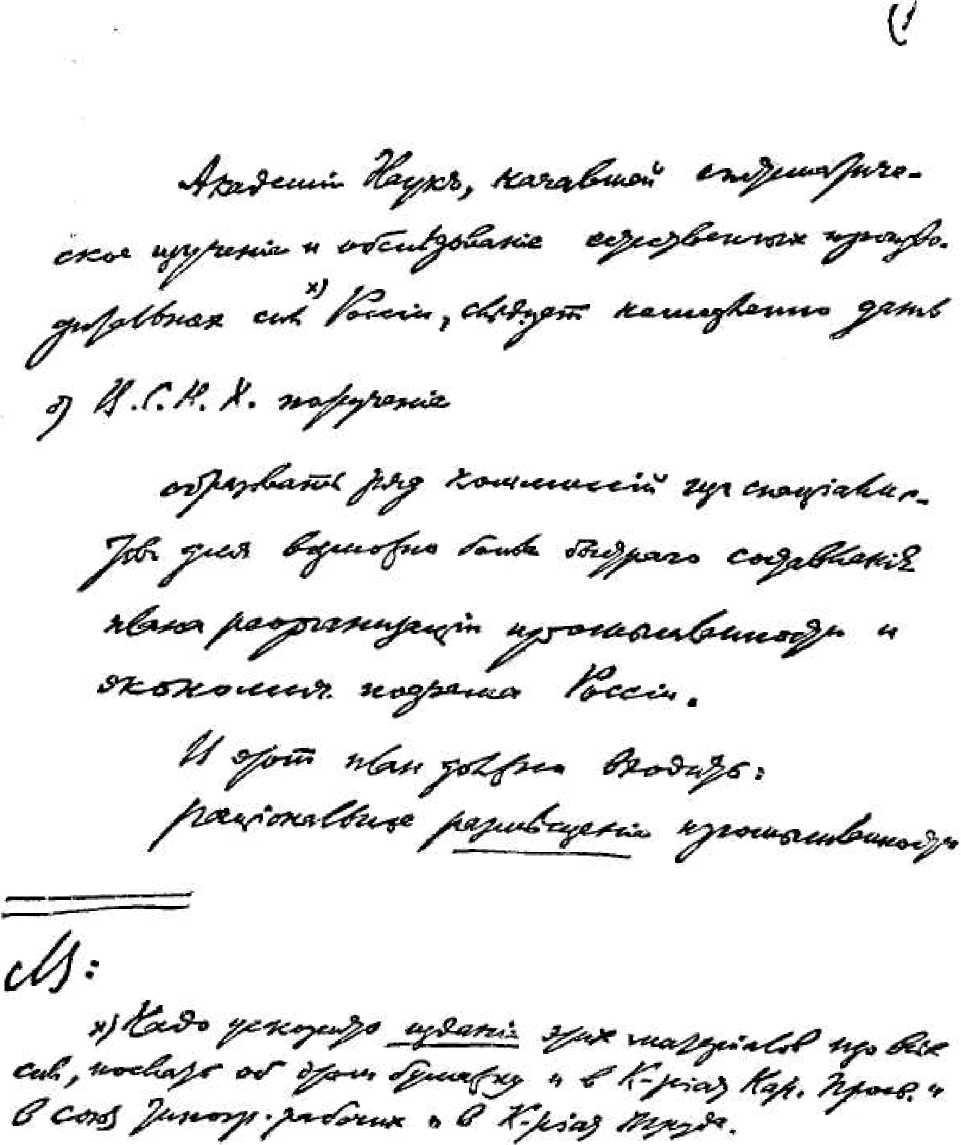 Академіи Наукъ, начавшей систематиче-
ское изученіе и обслѣдованіе естественных произво-
дительных силъ x) Россіи, слѣдует немедленно дать
от В.С.Н.Х. порученіе
образовать ряд коммиссій из спеціалис-
тов для возможно более быстраго составленія
плана реорганизаціи промышленности и
экономич. подъема Россіи.
В этот план должно входить:
раціональное размѣщеніе промышленности
NB:
x) Надо ускорить изданіе этих матеріалов изо всѣх
сил, послать об этом бумажку и в К-ріат Нар. Просв. и
в союз типогр. рабочих и в К-ріат Труда.